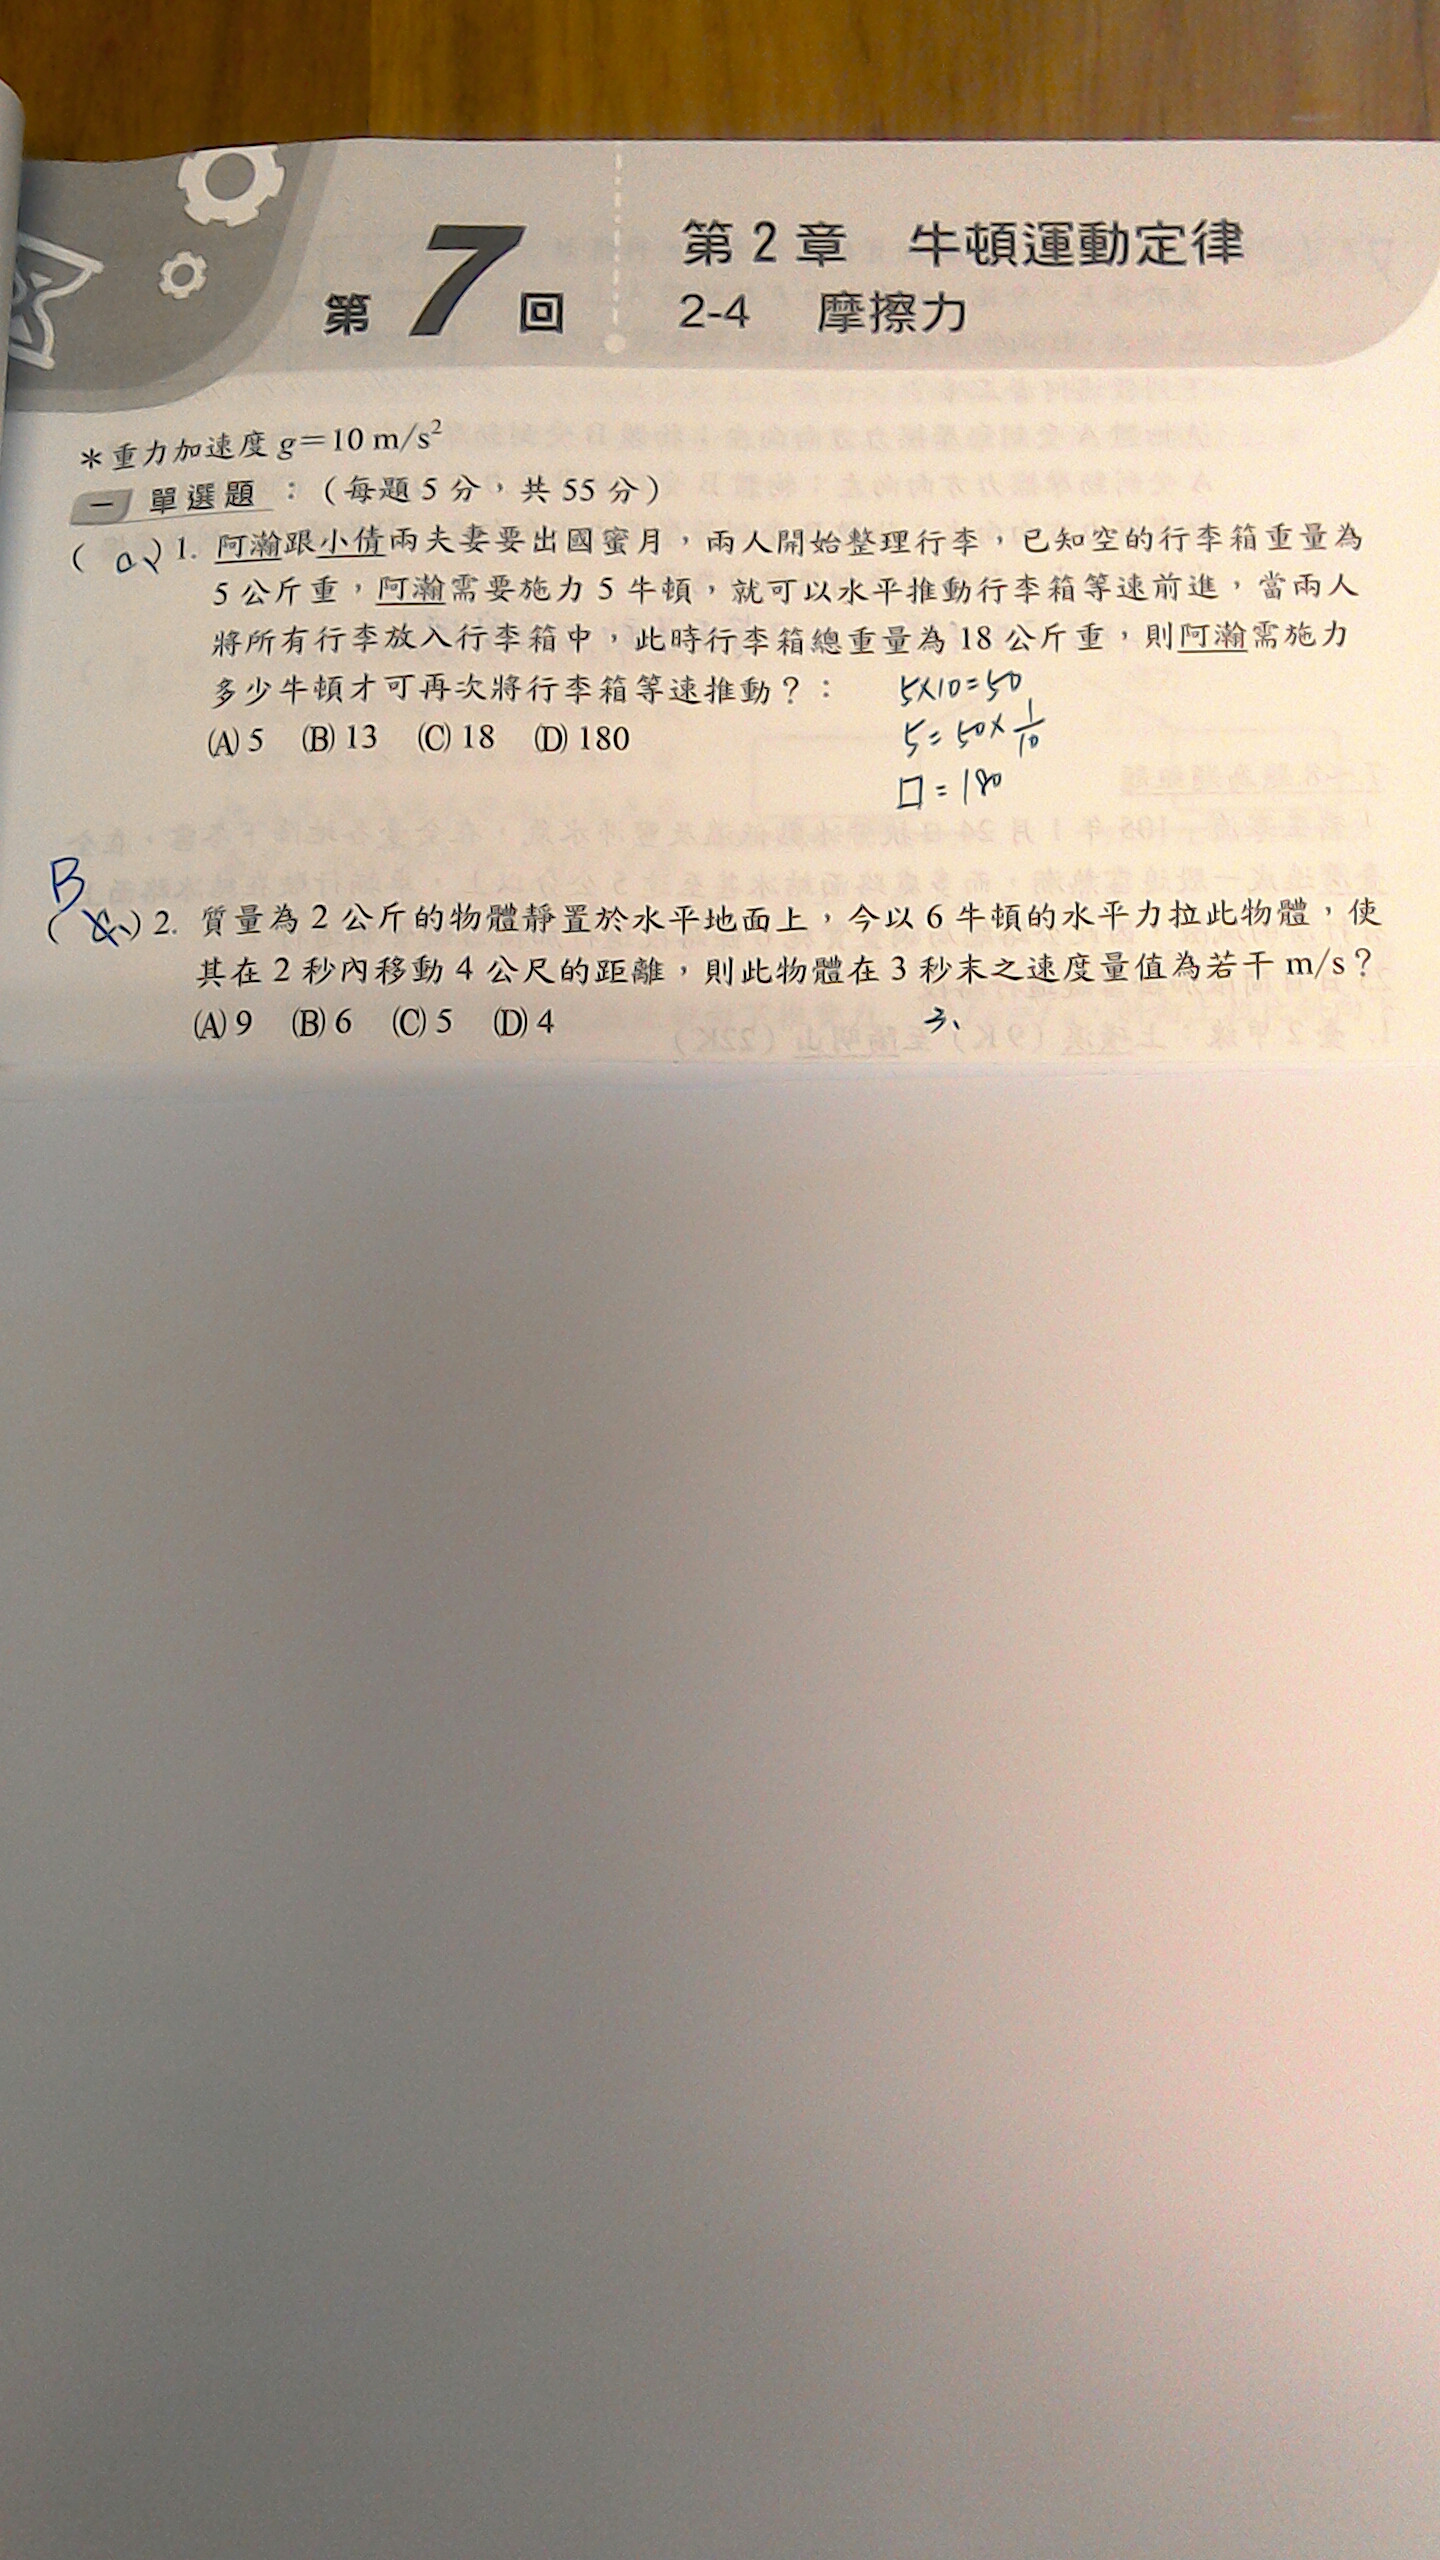 第7回
第2章 牛頓運動定律
2-4 摩擦力
＊重力加速度 g＝10 m/s²
一 單選題：（每題 5 分，共 55 分）
( ) 1. 阿瀚跟小倩兩夫妻要出國蜜月，兩人開始整理行李，已知空的行李箱重量為
5 公斤重，阿瀚需要施力 5 牛頓，就可以水平推動行李箱等速前進，當兩人
將所有行李放入行李箱中，此時行李箱總重量為 18 公斤重，則阿瀚需施力
多少牛頓才可再次將行李箱等速推動？：
(A) 5 (B) 13 (C) 18 (D) 180
5×10=50
5=50×1/10
□=180
B
( ) 2. 質量為 2 公斤的物體靜置於水平地面上，今以 6 牛頓的水平力拉此物體，使
其在 2 秒內移動 4 公尺的距離，則此物體在 3 秒末之速度量值為若干 m/s？
(A) 9 (B) 6 (C) 5 (D) 4